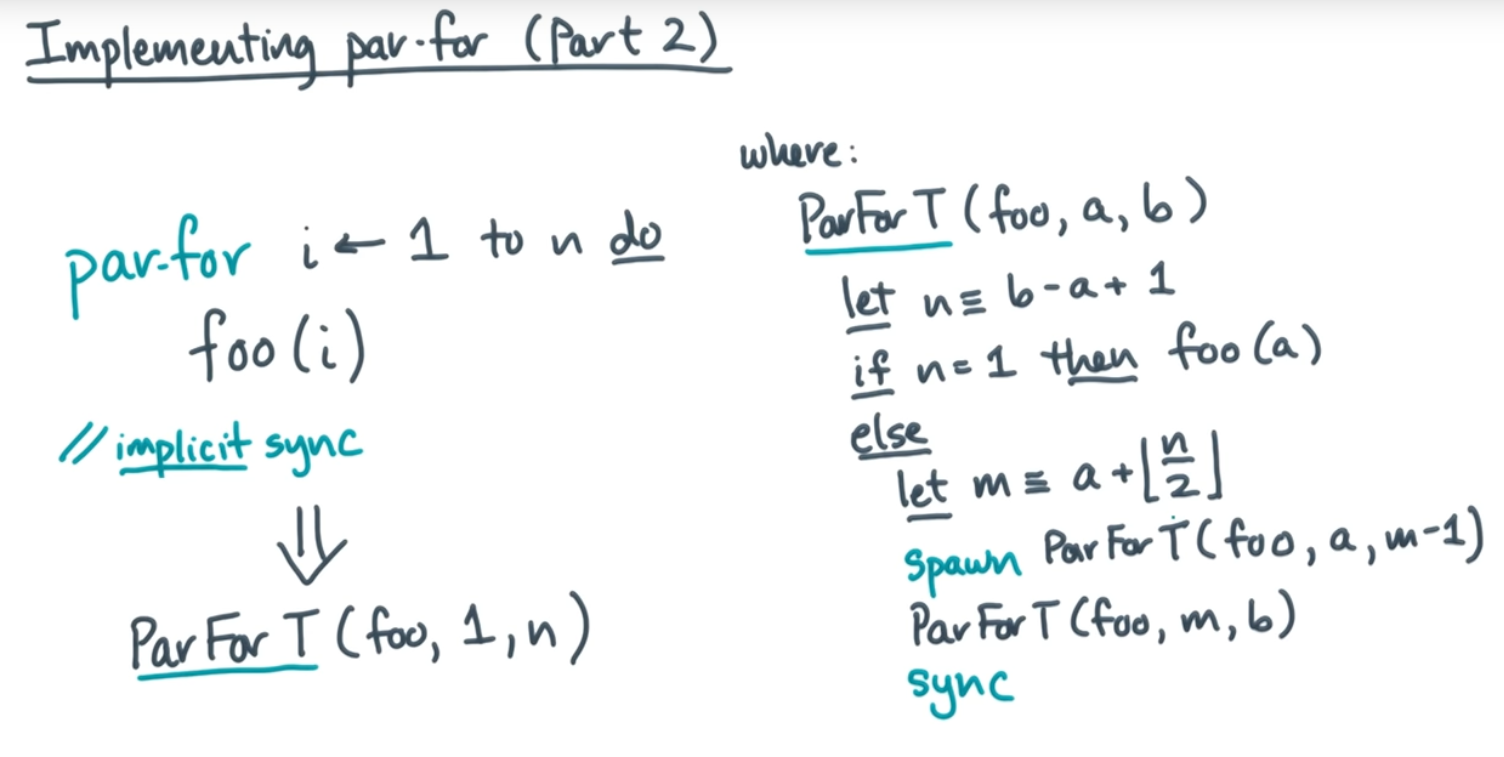 Implementing par-for (Part 2)
par-for i ← 1 to n do
foo(i)
// implicit sync
⇓
ParForT(foo, 1, n)
where:
ParForT(foo, a, b)
let n ≡ b - a + 1
if n = 1 then foo(a)
else
let m ≡ a + ⌊n/2⌋
spawn ParForT(foo, a, m-1)
ParForT(foo, m, b)
sync